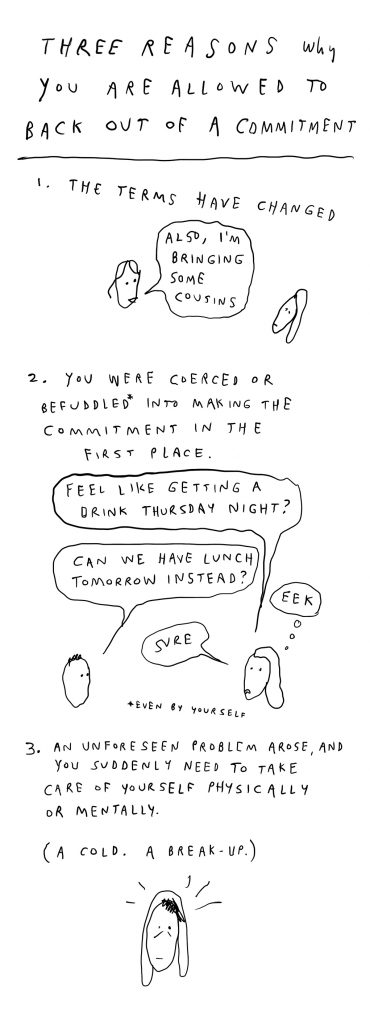 THREE REASONS why
YOU ARE ALLOWED TO
BACK OUT OF A COMMITMENT
1. THE TERMS HAVE CHANGED
ALSO, I'M
BRINGING
SOME
COUSINS
2. YOU WERE COERCED OR
BEFUDDLED* INTO MAKING THE
COMMITMENT IN THE
FIRST PLACE.
FEEL LIKE GETTING A
DRINK THURSDAY NIGHT?
CAN WE HAVE LUNCH
TOMORROW INSTEAD?
EEK
SURE
*EVEN BY YOURSELF
3. AN UNFORESEEN PROBLEM AROSE, AND
YOU SUDDENLY NEED TO TAKE
CARE OF YOURSELF PHYSICALLY
OR MENTALLY.
(A COLD. A BREAK-UP.)